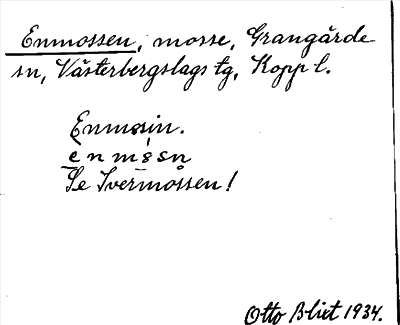 Enmossen, mosse, Grangärde
sn, Västerbergslags tg, Kopp l.
Enmosin.
Se Ivermossen!
Otto Blixt 1934.